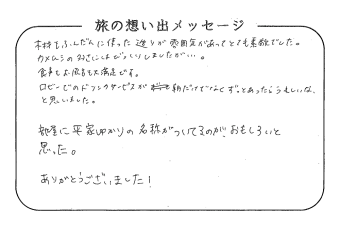 旅の想い出メッセージ
木材をふんだんに使った造りが雰囲気があってとても素敵でした。
カメムシのおきにはびっくりしましたが…。
食事もお風呂も大満足です。
ロビーでのドリンクサービスが朝だけでなくずっとあったらうれしいな、
と思いました。
部屋に平家ゆかりの名称がついてるのが、おもしろいと
思った。
ありがとうございました!